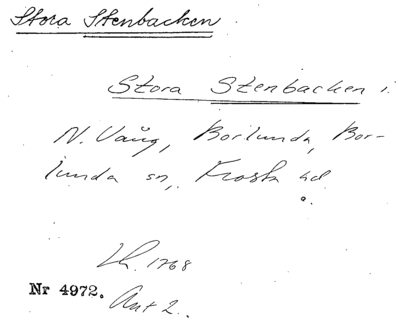 Stora Stenbacken
Stora Stenbacken i
N. Vång, Borlunda, Bor-
lunda sn, Frosta hd
Lh. 1768
Nr 4972.
Akt 2.